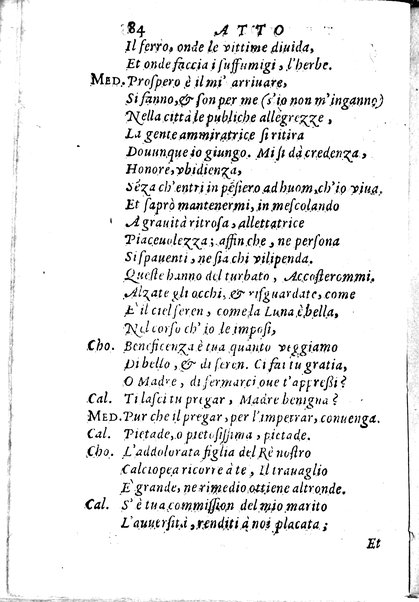 84 ATTO
Il ferro, onde le vittime diuida,
Et onde faccia i suffumigi, l'herbe.
MED. Prospero è il mi' arriuare,
Si fanno, & son per me (s'io non m'inganno)
Nella città le publiche allegrezze,
La gente ammiratrice si ritira
Douunque io giungo. Mi si dà credenza,
Honore, vbidienza,
Sēza ch'entri in pēsiero ad huom, ch'io viua,
Et saprò mantenermi, in mescolando
A grauità ritrosa, allettatrice
Piaceuolezza; affin che, ne persona
Si spauenti, ne sia chi vilipenda.
Queste hanno del turbato, Accosterommi,
Alzate gli occhi, & risguardate, come
E' il ciel seren, come la Luna è bella,
Nel corso ch' io le imposi,
Cho. Beneficenza è tua quanto veggiamo
Di bello, & di seren. Ci fai tu gratia,
O Madre, di fermarci oue t'appressi?
Cal. Ti lasci tu pregar, Madre benigna?
MED. Pur che il pregar, per l'impetrar, conuenga.
Cal. Pietade, o pietosissima, pietade.
Cho. L'addolorata figlia del Rè nostro
Calciopea ricorre à te, Il trauaglio
E' grande, ne rimedio ottiene altronde.
Cal. S' è tua commission del mio marito
L'auuersità, renditi à noi placata;
Et